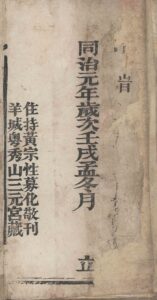 同治元年歲次壬戌孟冬月 立
住持黃宗性募化敬刊
羊城粤秀山三元宮藏